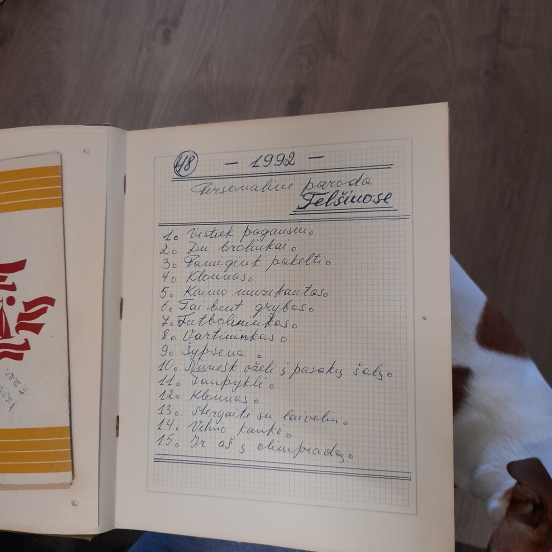 48 — 1992 —
Personalinė paroda
Telšiuose
1. Vistiek pagausiu.
2. Du broliukai.
3. Pamėgink pakelti.
4. Klounas.
5. Kaimo muzikantas.
6. Tai bent grybas.
7. Futbolininkas.
8. Vartininkas.
9. Šypsena.
10. Nunešk oželi į pasakų šalį.
11. Taupyklė.
12. Klounas.
13. Mergaitė su laiveliu.
14. Velnio kaukė.
15. Ir aš į olimpiadą.